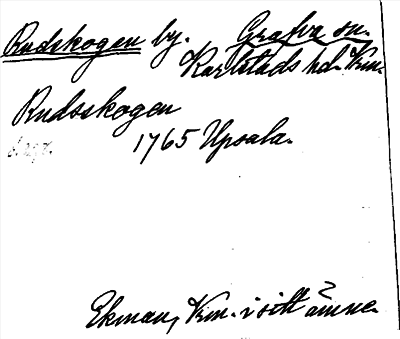 Rudskogen by. Grava sn.
Karlstads hd. Vrm.
Rudsskogen
1765 Upsala.
Ekman, Vrm. i sitt ämne.